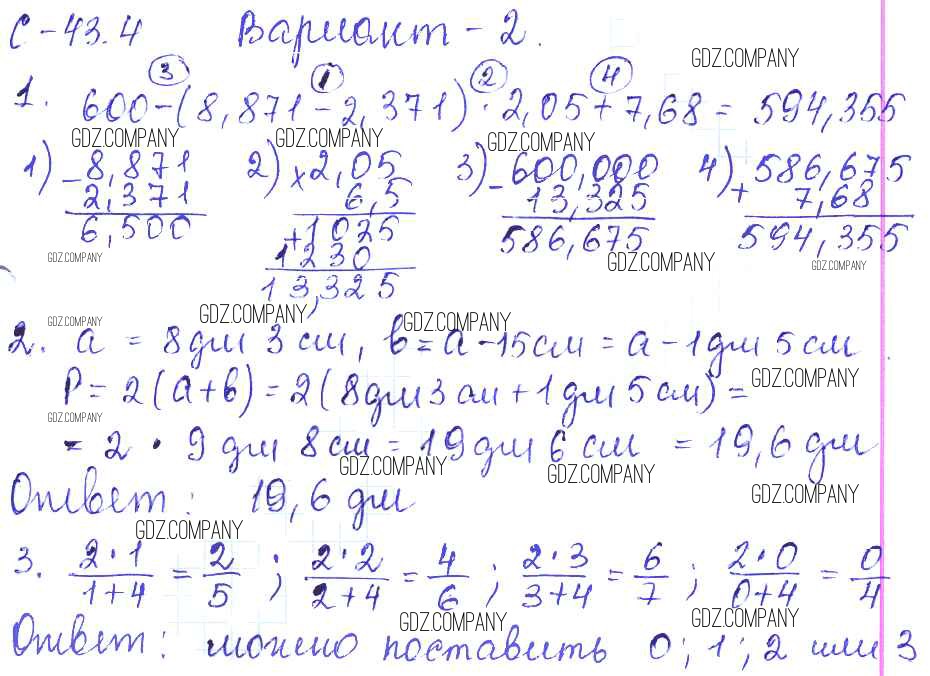 С-43.4 Вариант-2.
GDZ.COMPANY
③ ① ② ④
1. 600-(8,871-2,371)·2,05+7,68=594,355
GDZ.COMPANY GDZ.COMPANY GDZ.COMPANY
1) -8,871 2) ×2,05 3) -600,000 4) +586,675
2,371 6,5 13,325 7,68
6,500 +1025 586,675 594,355
GDZ.COMPANY 1230 GDZ.COMPANY GDZ.COMPANY
13,325
GDZ.COMPANY GDZ.COMPANY GDZ.COMPANY
2. a = 8дм 3см, b=a-15см=a-1дм 5см
P=2(a+b)=2(8дм3см+1дм5см)= GDZ.COMPANY
GDZ.COMPANY
=2·9дм 8см=19дм 6см =19,6 дм
GDZ.COMPANY GDZ.COMPANY
Ответ: 19,6 дм GDZ.COMPANY
GDZ.COMPANY
3. 2·1/1+4 = 2/5 ; 2·2/2+4 = 4/6 ; 2·3/3+4 = 6/7 ; 2·0/0+4 = 0/4
GDZ.COMPANY GDZ.COMPANY
Ответ: можно поставить 0; 1; 2 или 3